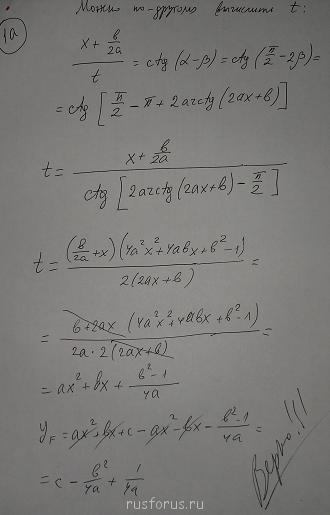 1а
Можно по-другому вычислить t:
(x + b/2a)/t = ctg(α-β) = ctg(π/2 - 2β) =
= ctg[π/2 - π + 2arcctg(2ax+b)]
t = (x + b/2a)/(ctg[2arcctg(2ax+b) - π/2])
t = ((b/2a + x)(4a²x² + 4abx + b² - 1))/(2(2ax+b)) =
= (b+2ax (4a²x² + 4abx + b² - 1))/(2a·2(2ax+b)) =
= ax² + bx + (b²-1)/4a
y_F = ax² + bx + c - ax² - bx - (b²-1)/4a =
= c - b²/4a + 1/4a
Верно!!!
rusforus.ru